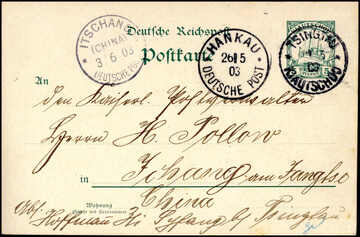 Deutsche Reichspost
Postkarte
KIAUTSCHOU
ITSCHANG
(CHINA)
3 6 03
DEUTSCHE POST
HANKAU
26 5
03
DEUTSCHE POST
TSINGTAU
03
KIAUTSCHOU
An
den Kaiserl. Postverwalter
Herrn H. Pollow
in Ichang am Yangtse
China
Wohnung
Abs. Hoffmann
Tsingtau